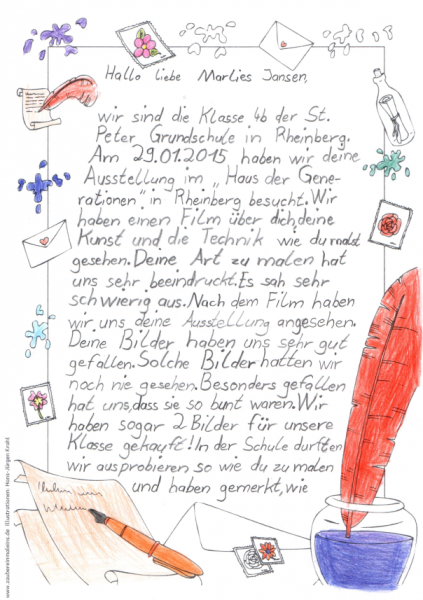 Hallo liebe Marlies Jansen,
wir sind die Klasse 4b der St.
Peter Grundschule in Rheinberg.
Am 29.01.2015 haben wir deine
Ausstellung im „Haus der Gene-
rationen" in Rheinberg besucht. Wir
haben einen Film über dich, deine
Kunst und die Technik wie du malst
gesehen. Deine Art zu malen hat
uns sehr beeindruckt. Es sah sehr
schwierig aus. Nach dem Film haben
wir uns deine Ausstellung angesehen.
Deine Bilder haben uns sehr gut
gefallen. Solche Bilder hatten wir
noch nie gesehen. Besonders gefallen
hat uns, dass sie so bunt waren. Wir
haben sogar 2 Bilder für unsere
Klasse gekauft! In der Schule durften
wir ausprobieren so wie du zu malen
und haben gemerkt, wie
www.zaubereinmaleins.de Illustrationen: Hans-Jürgen Krahl